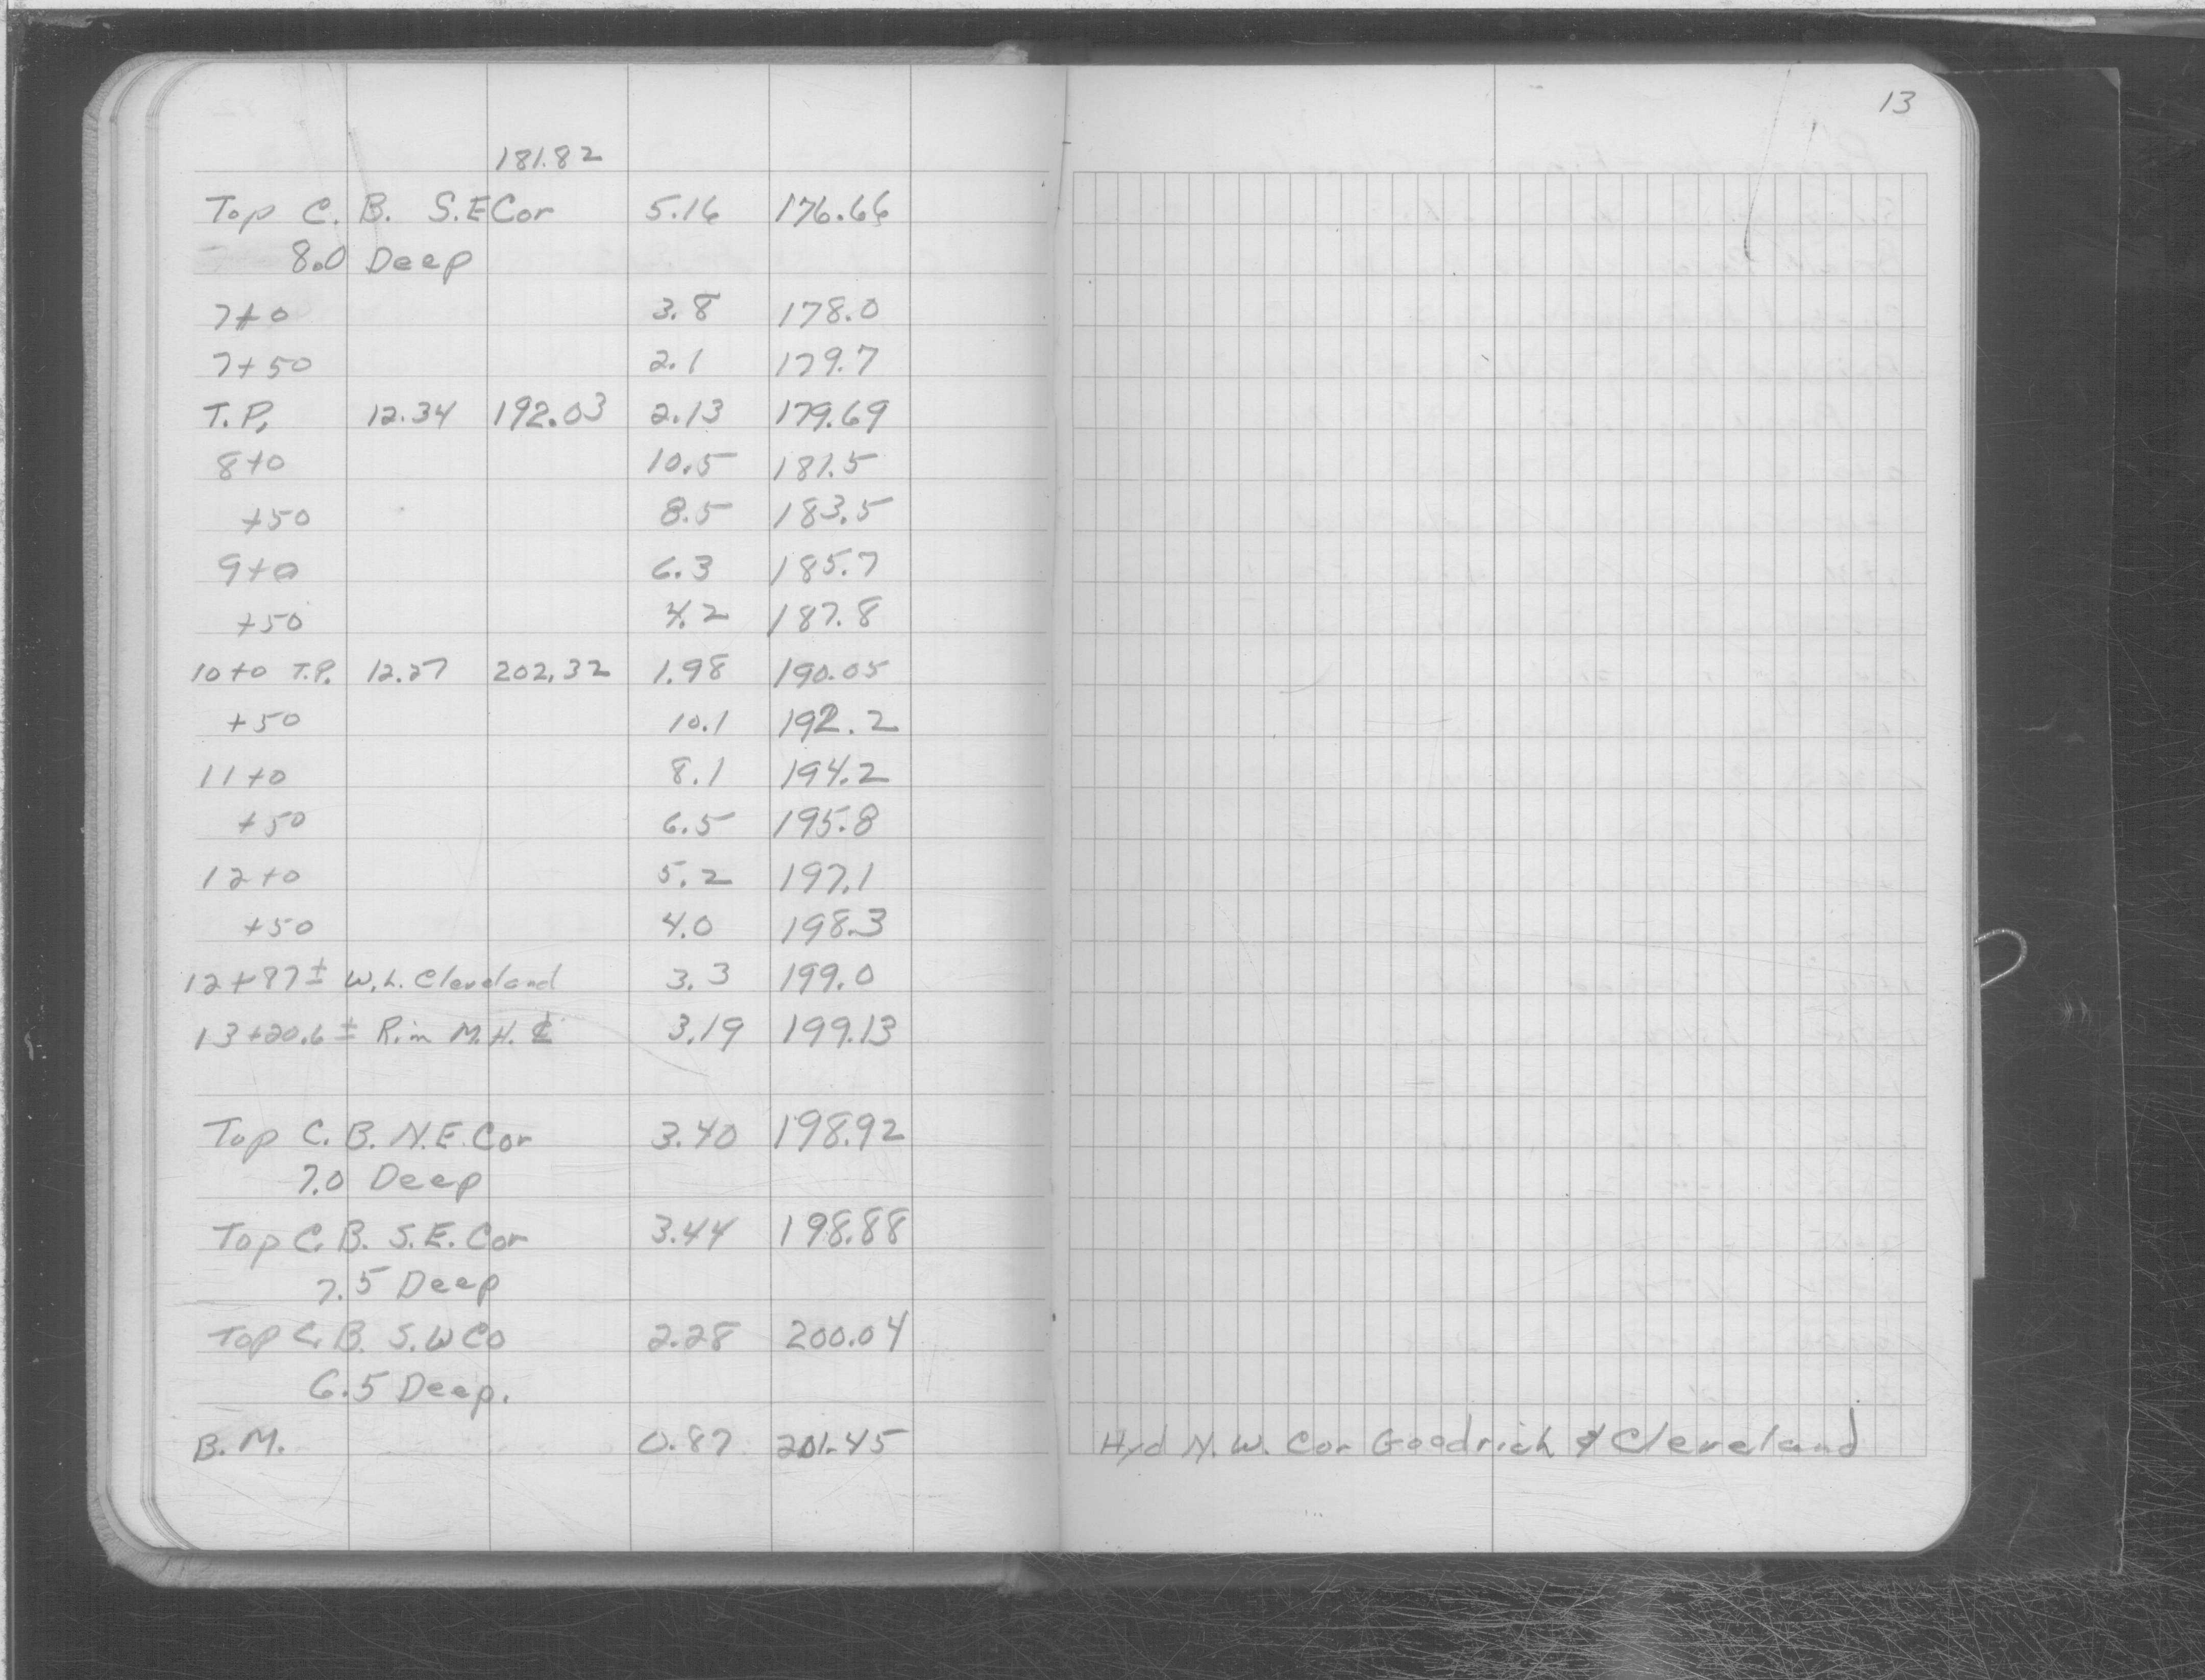 13
181.82
Top C. B. S.E Cor 5.16 176.66
8.0 Deep
7+0 3.8 178.0
7+50 2.1 179.7
T.P. 12.34 192.03 2.13 179.69
8+0 10.5 181.5
+50 8.5 183.5
9+0 6.3 185.7
+50 4.2 187.8
10+0 T.P. 12.27 202.32 1.98 190.05
+50 10.1 192.2
11+0 8.1 194.2
+50 6.5 195.8
12+0 5.2 197.1
+50 4.0 198.3
12+87± W.L. Cleveland 3.3 199.0
13+20.6± Rim M.H. ℄ 3.19 199.13
Top C. B. N.E. Cor 3.40 198.92
7.0 Deep
Top C. B. S.E. Cor 3.44 198.88
7.5 Deep
Top C. B. S.W Co 2.28 200.04
6.5 Deep.
B.M. 0.87 201.45 Hyd N.W. Cor Goodrich & Cleveland